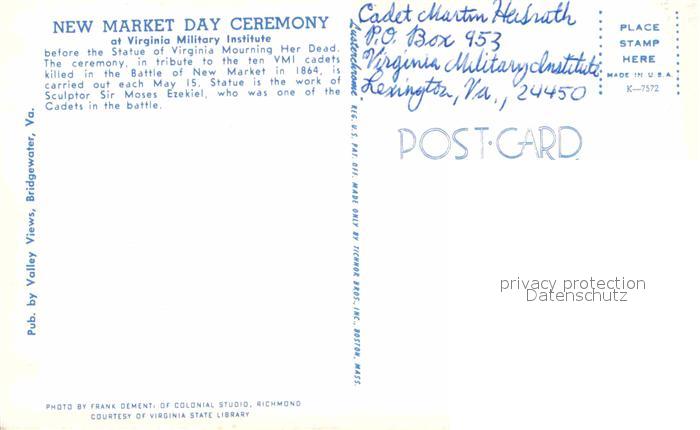 NEW MARKET DAY CEREMONY
at Virginia Military Institute
before the Statue of Virginia Mourning Her Dead.
The ceremony, in tribute to the ten VMI cadets
killed in the Battle of New Market in 1864, is
carried out each May 15. Statue is the work of
Sculptor Sir Moses Ezekiel, who was one of the
Cadets in the battle.
Pub. by Valley Views, Bridgewater, Va.
PHOTO BY FRANK DEMENTI OF COLONIAL STUDIO, RICHMOND
COURTESY OF VIRGINIA STATE LIBRARY
Lusterchrome REG. U.S. PAT. OFF. MADE ONLY BY TICHNOR BROS., INC., BOSTON, MASS.
Cadet Martin
P.O. Box 953
Virginia Military Institute
Lexington, Va., 24450
PLACE
STAMP
HERE
MADE IN U.S.A.
K-7572
POST-CARD
privacy protection
Datenschutz